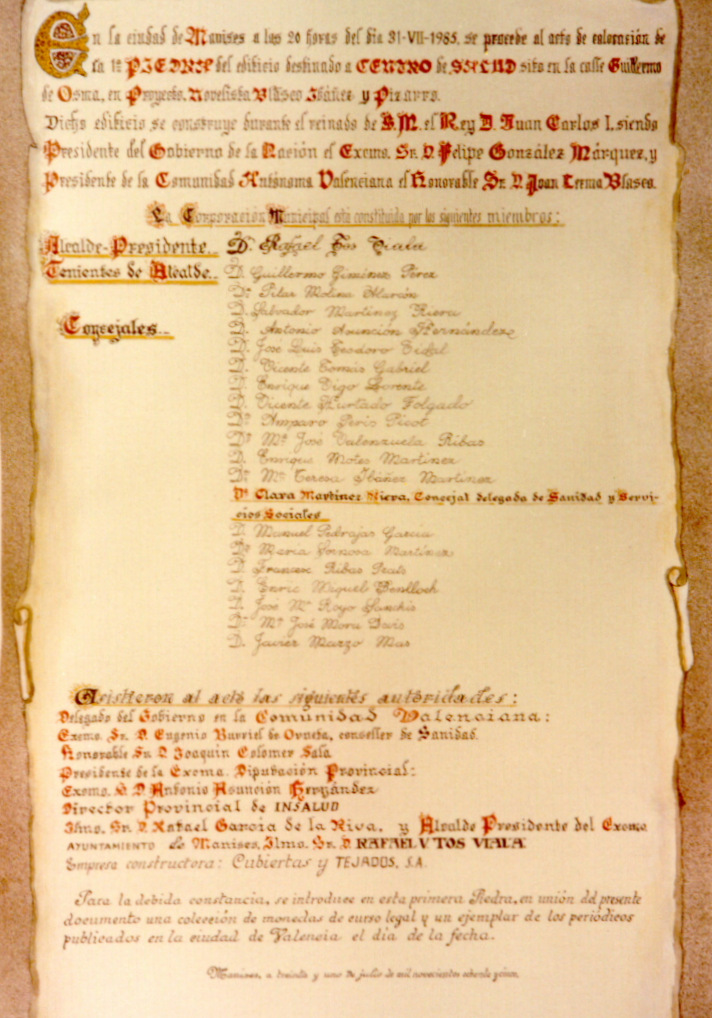 En la ciudad de Manises a las 20 horas del día 31-VII-1985, se procede al acto de colocación de
la 1ª PIEDRA del edificio destinado a CENTRO de SALUD sito en la calle Guillermo
de Osma, en Proyecto, Novelista Blasco Ibáñez y Pizarro.
Dicho edificio se construye durante el reinado de S.M. el Rey D. Juan Carlos I, siendo
Presidente del Gobierno de la Nación el Excmo. Sr. D. Felipe González Márquez, y
Presidente de la Comunidad Autónoma Valenciana el Honorable Sr. D. Joan Lerma Blasco.
La Corporación Municipal está constituida por los siguientes miembros:
Alcalde-Presidente.. D. Rafael Tos Viala
Tenientes de Alcalde.. D. Guillermo Giménez Pérez
Dª Pilar Molina Alarcón
D. Salvador Martínez Riera
Concejales... D. Antonio Asunción Hernández
D. José Luis Teodoro Vidal
D. Vicente Tomás Gabriel
D. Enrique Vigo Llorente
D. Vicente Hurtado Folgado
Dª Amparo Peris Picot
Dª Mª José Valenzuela Ribas
D. Enrique Motes Martínez
Dª Mª Teresa Ibáñez Martínez
Dª Clara Martínez Riera, Concejal delegada de Sanidad y Servi-
cios Sociales
D. Manuel Pedrajas García
Dª María Martínez
D. Francesc Ribas Prats
D. Enric Miquel Benlloch
D. José Mª Royo Sanchis
Dª Mª José Mora Devis
D. Javier Marzo Mas
Asistieron al acto las siguientes autoridades:
Delegado del Gobierno en la Comunidad Valenciana:
Excmo. Sr. D. Eugenio Burriel de Orueta, conseller de Sanidad.
Honorable Sr. D. Joaquín Colomer Sala
Presidente de la Excma. Diputación Provincial:
Excmo. S. D. Antonio Asunción Hernández
Director Provincial de INSALUD
Ilmo. Sr. D. Rafael García de la Riva, y Alcalde Presidente del Excmo.
AYUNTAMIENTO de Manises, Ilmo. Sr. D. RAFAEL V TOS VIALA
Empresa constructora: Cubiertas y TEJADOS, S.A.
Para la debida constancia, se introduce en esta primera Piedra, en unión del presente
documento una colección de monedas de curso legal y un ejemplar de los periódicos
publicados en la ciudad de Valencia el día de la fecha.
Manises, a treinta y uno de julio de mil novecientos ochenta y cinco.